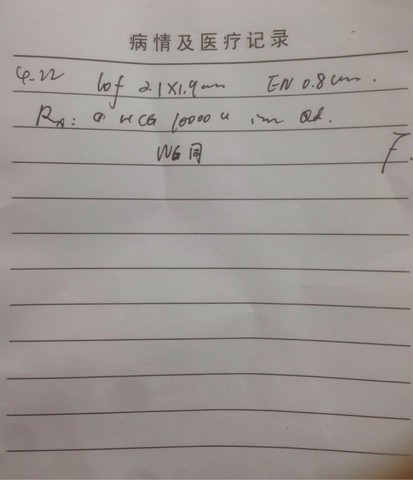 病情及医疗记录
4-22 Lof 2.1X1.9cm EN 0.8cm.
Rx: ① HCG 10000u im Qd.
同